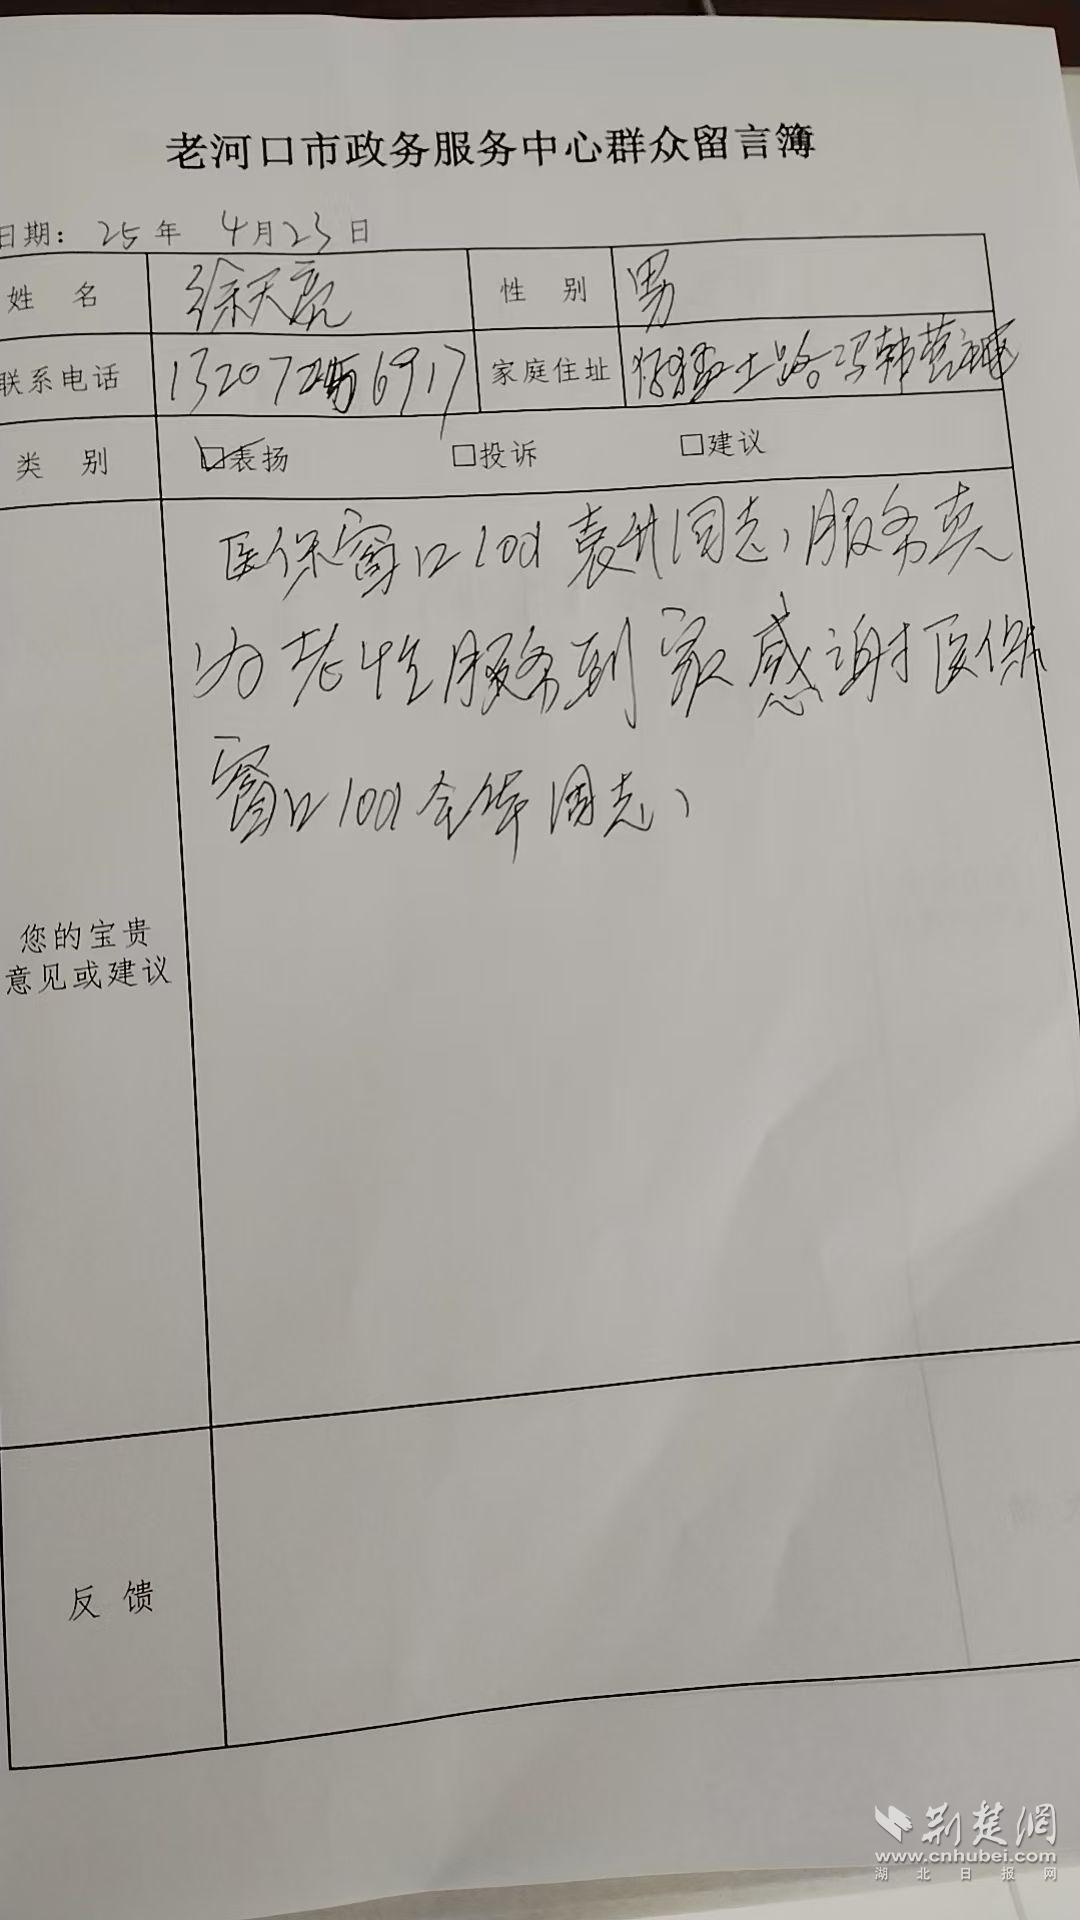 老河口市政务服务中心群众留言簿
日期: 25 年 4月23日
姓 名 徐天亮 性 别 男
联系电话 家庭住址
类 别 表扬 投诉 建议
医保窗口1001袁升同志,服务真
为老性服务到家感谢医保
窗口1001全体同志,
您的宝贵
意见或建议
反 馈
荆楚網
www.cnhubei.com
湖北日报网